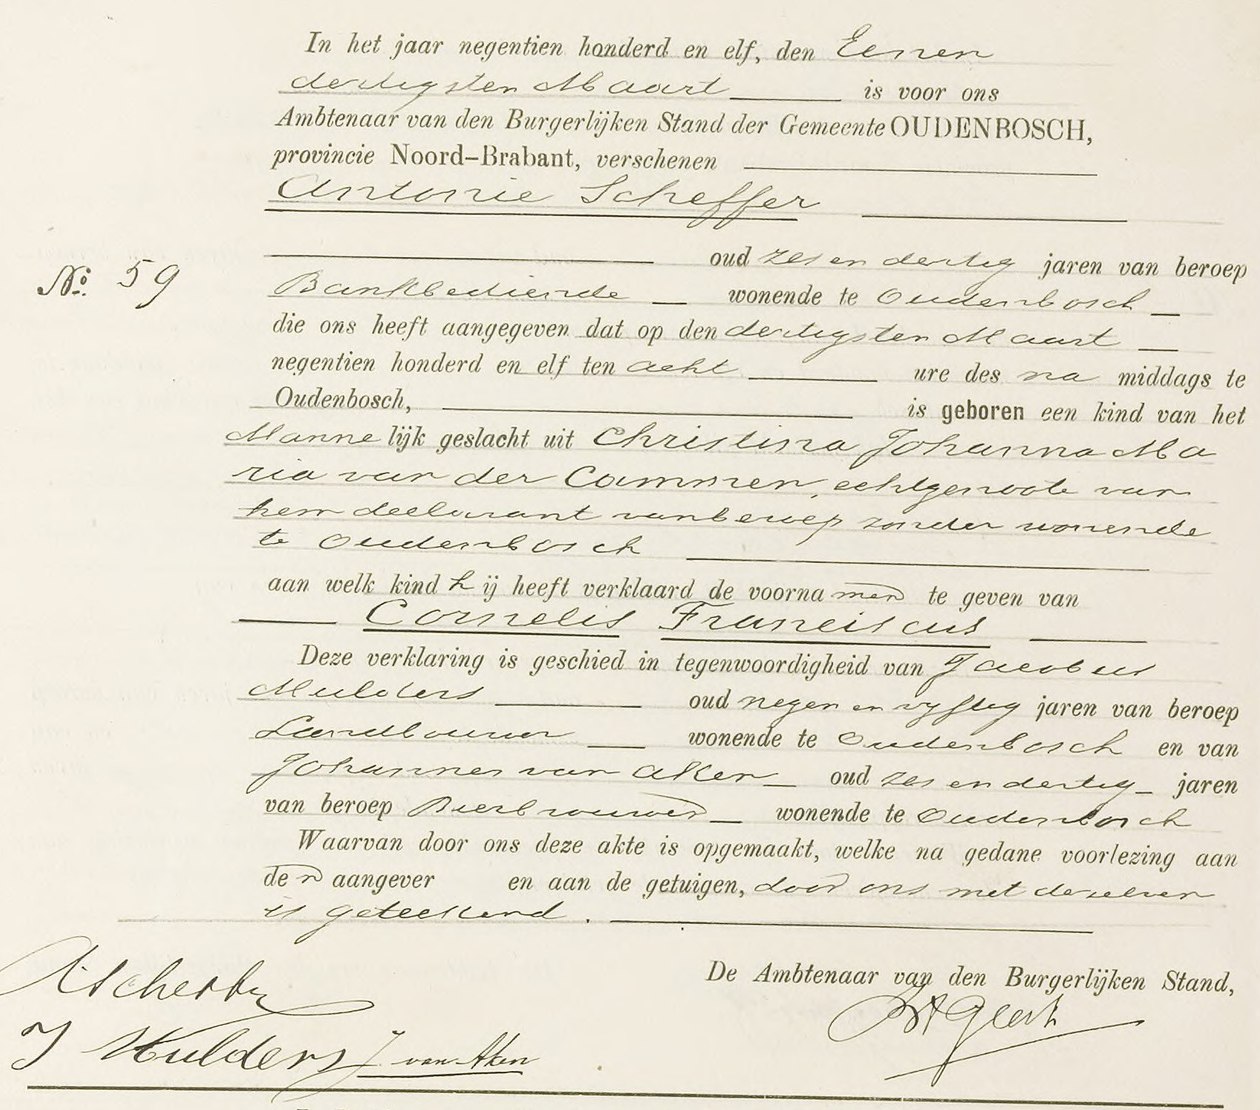 In het jaar negentien honderd en elf, den Eenen
dertigsten Maart is voor ons
Ambtenaar van den Burgerlijken Stand der Gemeente OUDENBOSCH,
provincie Noord-Brabant, verschenen
Antonie Scheffer
oud zes en dertig jaren van beroep
No. 59
Bankbediende wonende te Oudenbosch
die ons heeft aangegeven dat op den dertigsten Maart
negentien honderd en elf ten acht ure des na middags te
Oudenbosch, is geboren een kind van het
Mannelijk geslacht uit Christina Johanna Ma
ria van der Commen, echtgenoote van
hem declarant van beroep zonder wonende
te Oudenbosch
aan welk kind hij heeft verklaard de voornamen te geven van
Cornelis Franciscus
Deze verklaring is geschied in tegenwoordigheid van Jacobus
Mulders oud negen en vyftig jaren van beroep
Landbouwer wonende te Oudenbosch en van
Johannes van Aken oud zes en dertig jaren
van beroep Bierbrouwer wonende te Oudenbosch
Waarvan door ons deze akte is opgemaakt, welke na gedane voorlezing aan
den aangever en aan de getuigen, door ons met dezelven
is geteekend.
De Ambtenaar van den Burgerlijken Stand,
AScheffer
J Mulders J van Aken